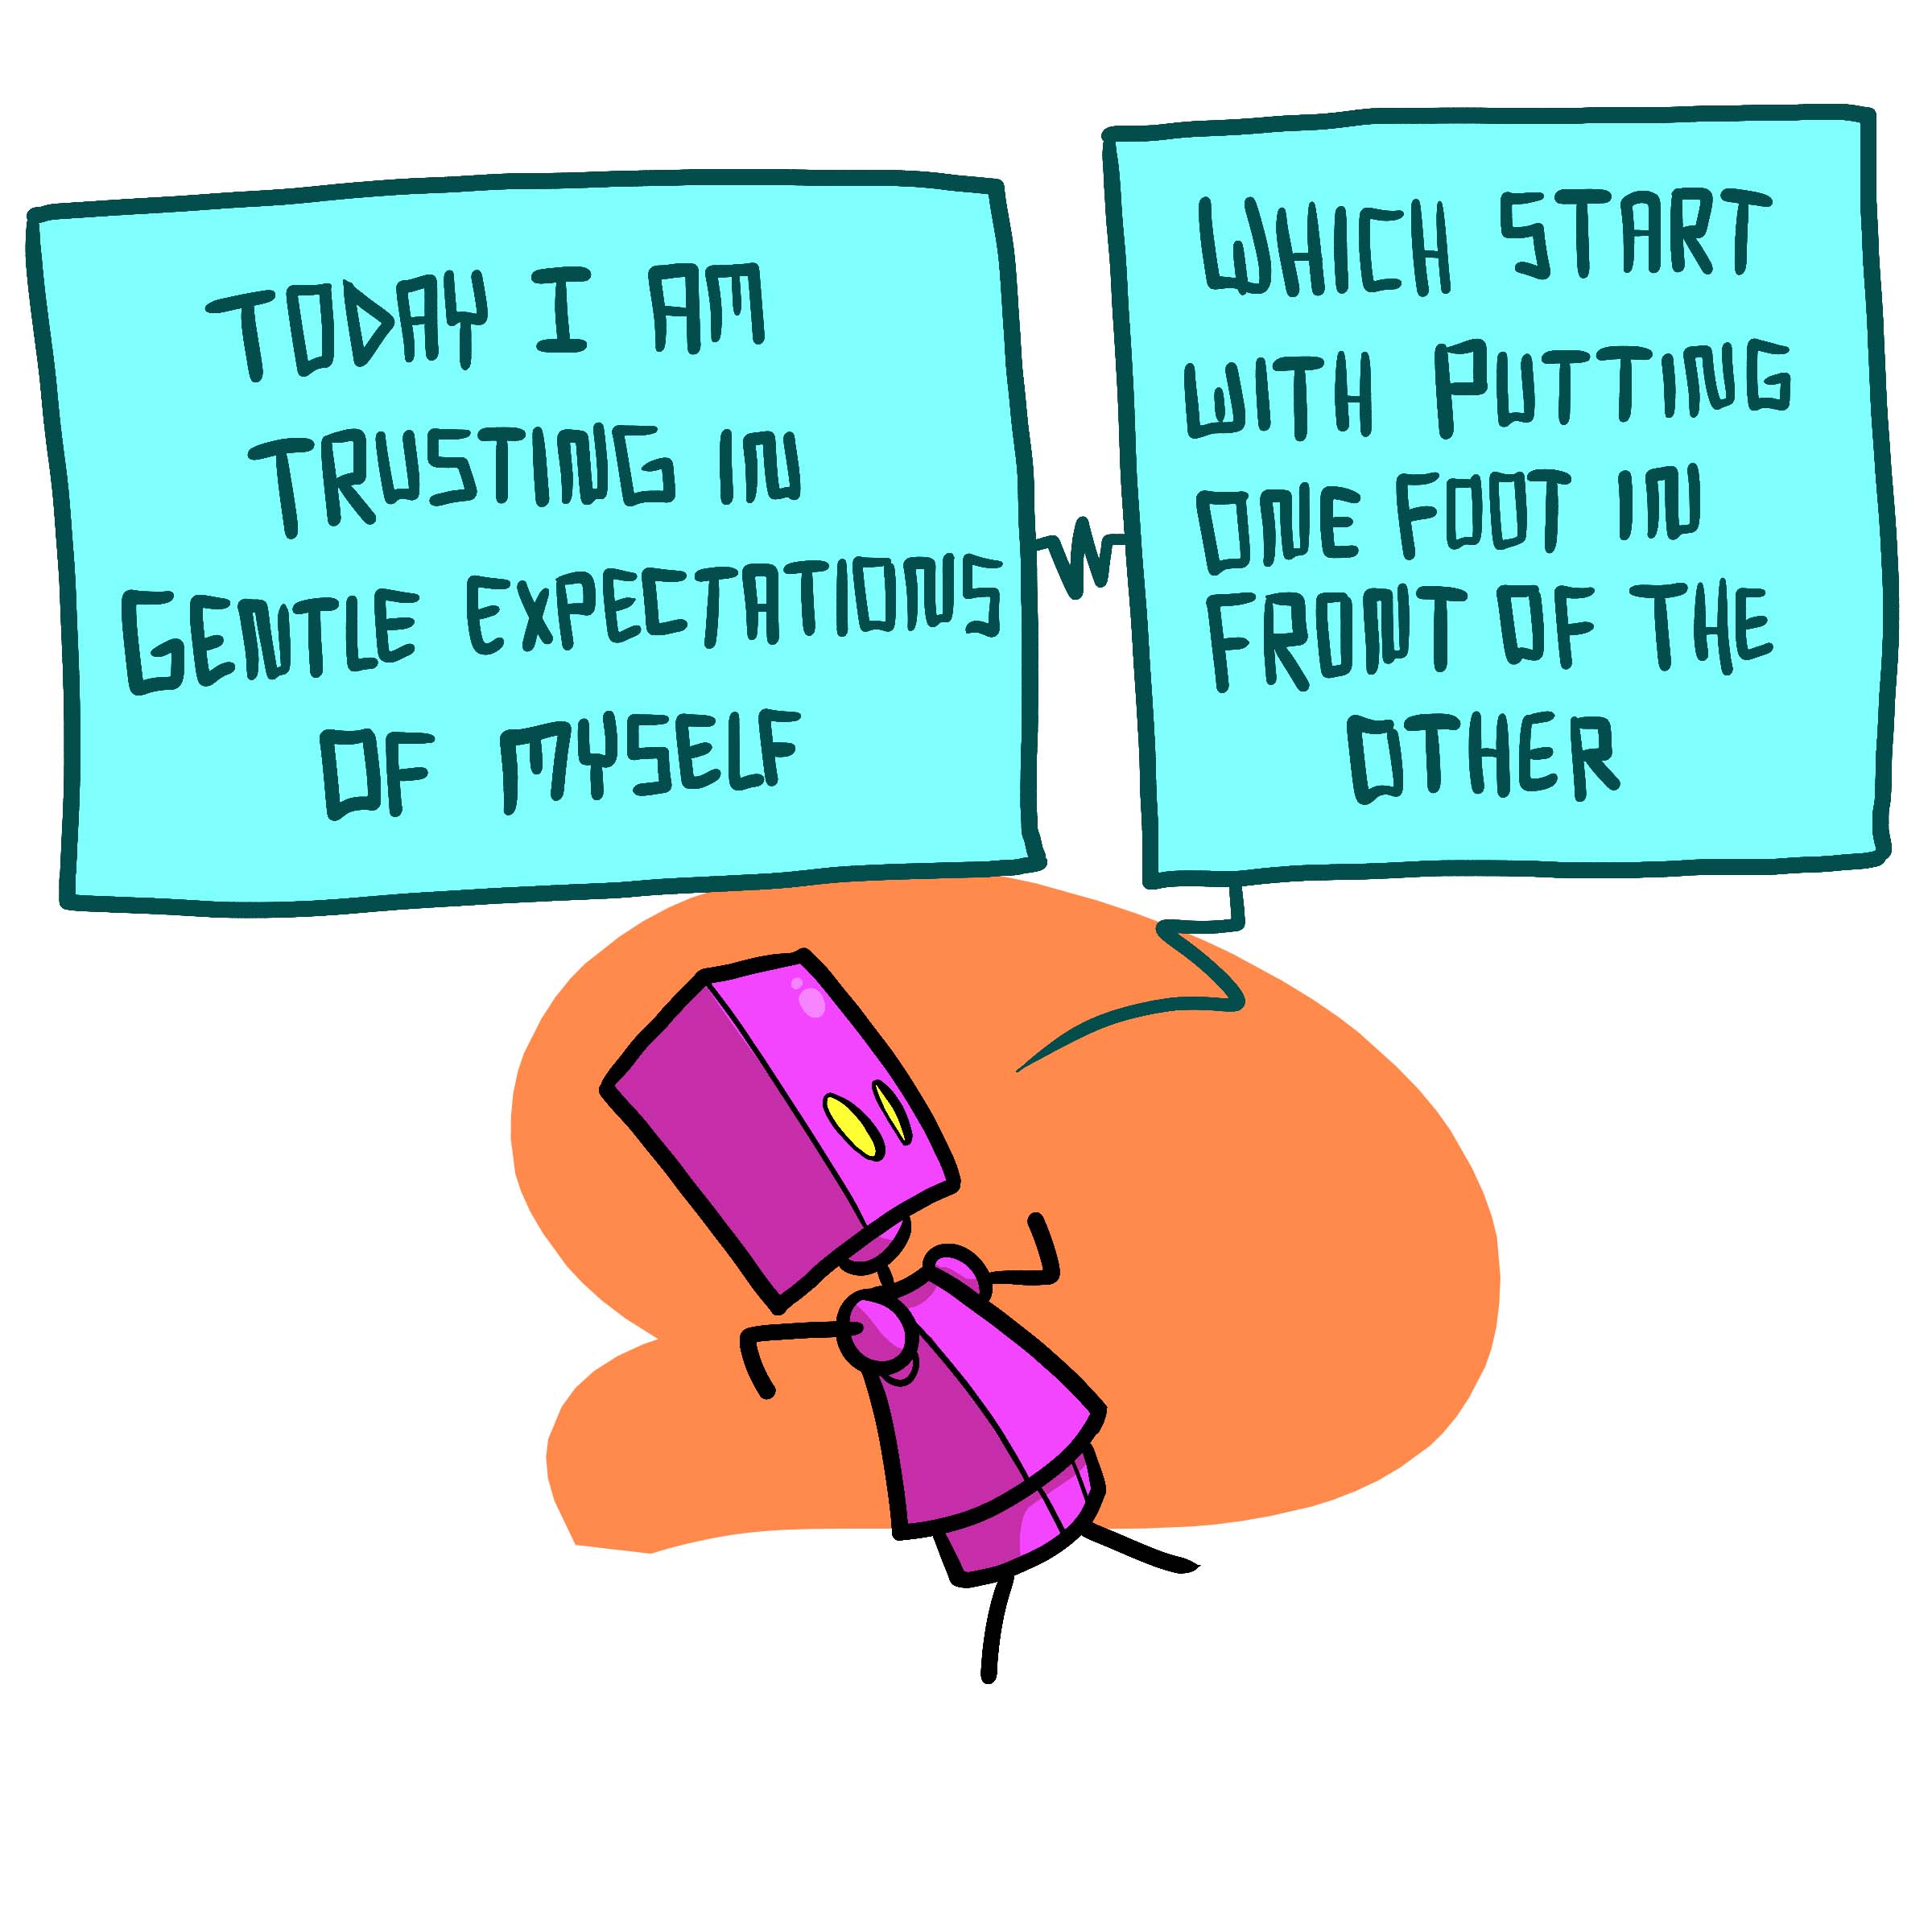 TODAY I AM
TRUSTING IN
GENTLE EXPECTATIONS
OF MYSELF
WHICH START
WITH PUTTING
ONE FOOT IN
FRONT OF THE
OTHER